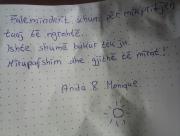 Faleminderit shum për mikpritjen
tuaj të ngrohtë.
Ishte shumë bukur tek ju.
Mirupafshim dhe gjithë të mirat!
Anita & Monique